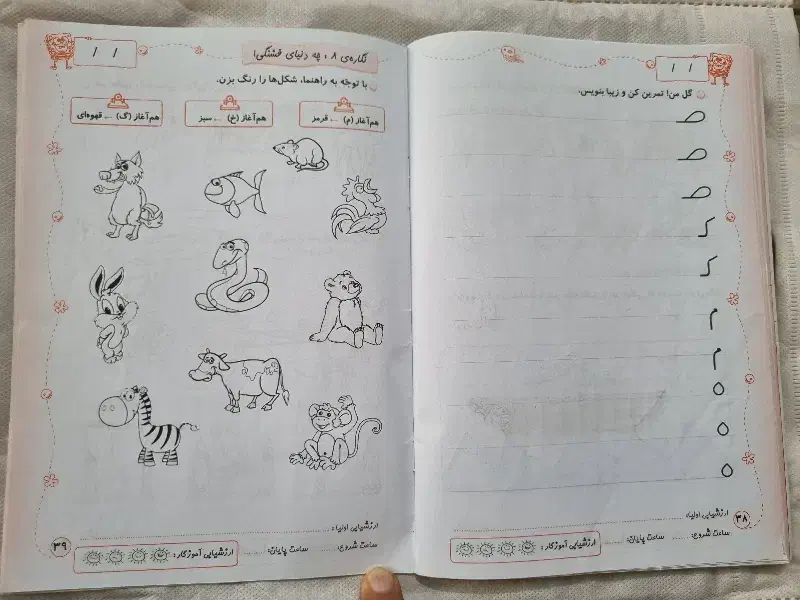 / /
گل من! تمرین کن و زیبا بنویس.
صـ
صـ
صـ
کـ
کـ
م
م
ه
ه
ه
ارزشیابی اولیا:
ساعت شروع: ...... ساعت پایان: ......
ارزشیابی آموزگار:
۳۸
/ /
نگاره‌ی ۸ : چه دنیای قشنگی!
با توجّه به راهنما، شکل‌ها را رنگ بزن.
هم‌آغاز (م) ← قرمز
هم‌آغاز (خ) ← سبز
هم‌آغاز (گ) ← قهوه‌ای
ارزشیابی اولیا:
ساعت شروع: ...... ساعت پایان: ......
ارزشیابی آموزگار:
۳۹